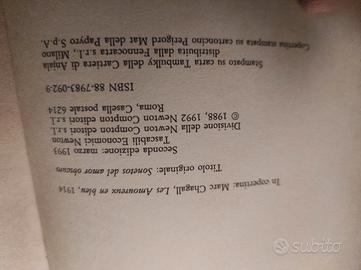 In copertina: Marc Chagall, Les Amoureux en bleu, 1914
Titolo originale: Sonetos del amor obscuro
Seconda edizione: marzo 1993
Tascabili Economici Newton
Divisione della Newton Compton editori s.r.l.
© 1988, 1992 Newton Compton editori s.r.l.
Roma, Casella postale 6214
ISBN 88-7983-092-9
Stampato su carta Tambulky della Cartiera di Anjala
distribuita dalla Fennocarta s.r.l., Milano
Copertina stampata su cartoncino Perigord Mat della Papyro S.p.A.
Subito.it